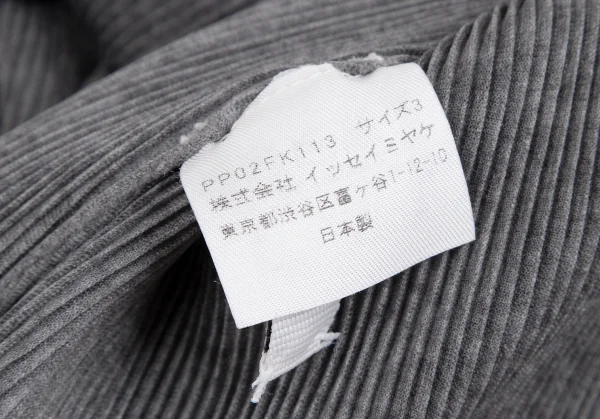 PP02FK113 サイズ3
株式会社 イッセイミヤケ
東京都渋谷区富ヶ谷1-12-10
日本製